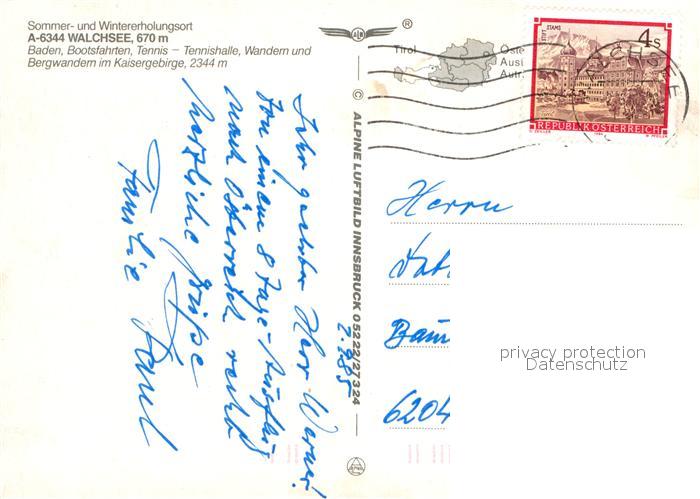 Sommer- und Wintererholungsort
A-6344 WALCHSEE, 670 m
Baden, Bootsfahrten, Tennis – Tennishalle, Wandern und
Bergwandern im Kaisergebirge, 2344 m
®
Tirol
Öste
Ausi
Autr
STIFT STAMS
4s
REPUBLIK ÖSTERREICH
© ALPINE LUFTBILD INNSBRUCK 05222/27324
2.9.85
Sehr geehrter Herr Werner!
Von einem 8 Tage-Ausflug
nach Österreich recht
herzliche Grüße
Familie
Herrn
6204
privacy protection
Datenschutz